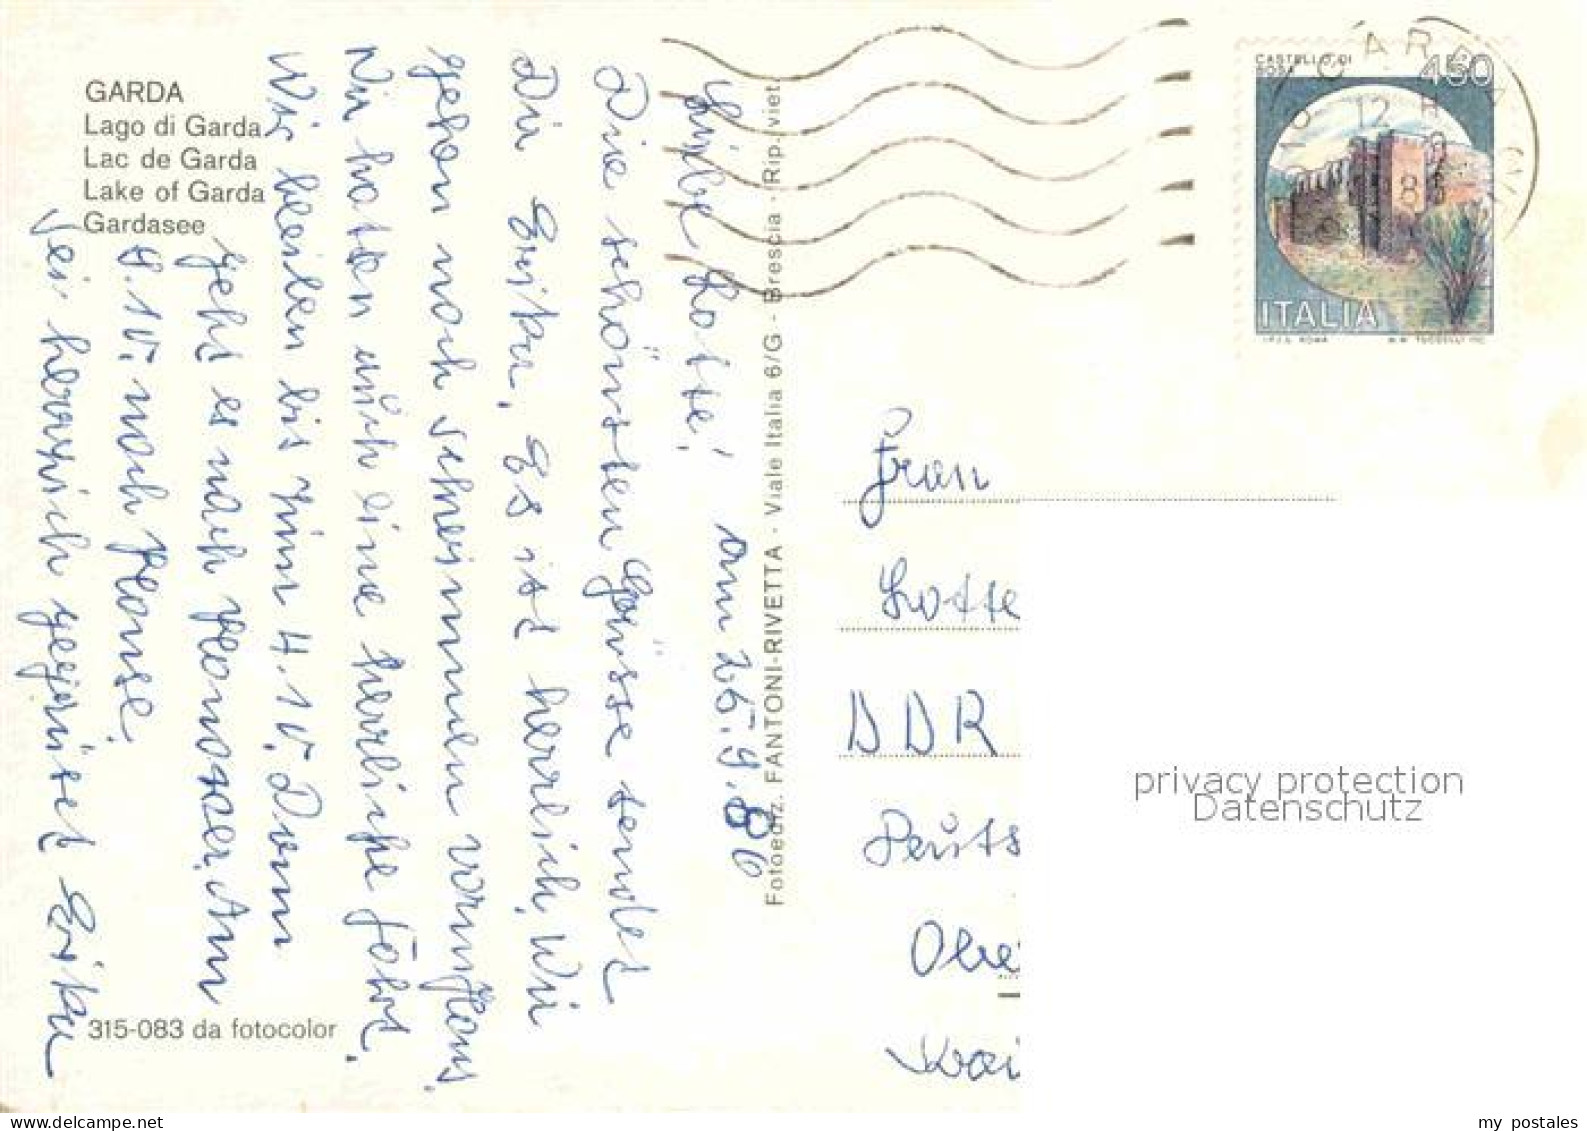 GARDA
Lago di Garda
Lac de Garda
Lake of Garda
Gardasee
315-083 da fotocolor
Fotoediz. FANTONI-RIVETTA - Viale Italia 6/G - Brescia - Rip. viet.
Liebe Lotte! am 25.9.86
Die schönsten Grüsse sendet
Dir Erika. Es ist herrlich. Wir
gehen noch schwimmen
Wir hatten eine herrliche Fahrt.
Wir bleiben bis zum 4.10. Dann
geht es nach Am
9.10. nach Hause.
herzlich gegrüsst Erika
CASTELLO DI
450
ITALIA
I.P.Z.S. ROMA
Frau
Lotte
DDR
Deuts
Ober
privacy protection
Datenschutz
my postales